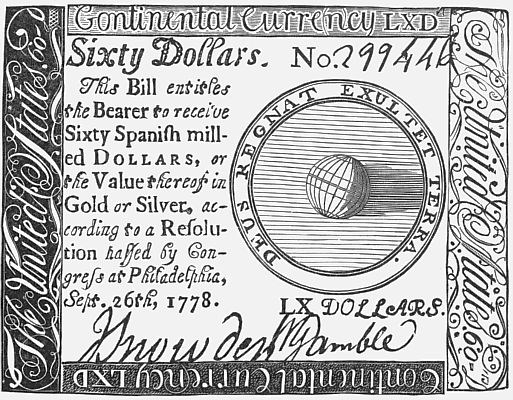 Continental Currency LXD
Sixty Dollars. No. 299446
This Bill entitles
the Bearer to receive
Sixty Spanish mill-
ed DOLLARS, or
the Value thereof in
Gold or Silver, ac-
cording to a Resolu-
tion passed by Con-
gress at Philadelphia,
Sept. 26th, 1778.
DEUS REGNAT EXULTET TERRA.
LX DOLLARS.
Gamble
The United States. 60
The United States. 60
Continental Currency LXD